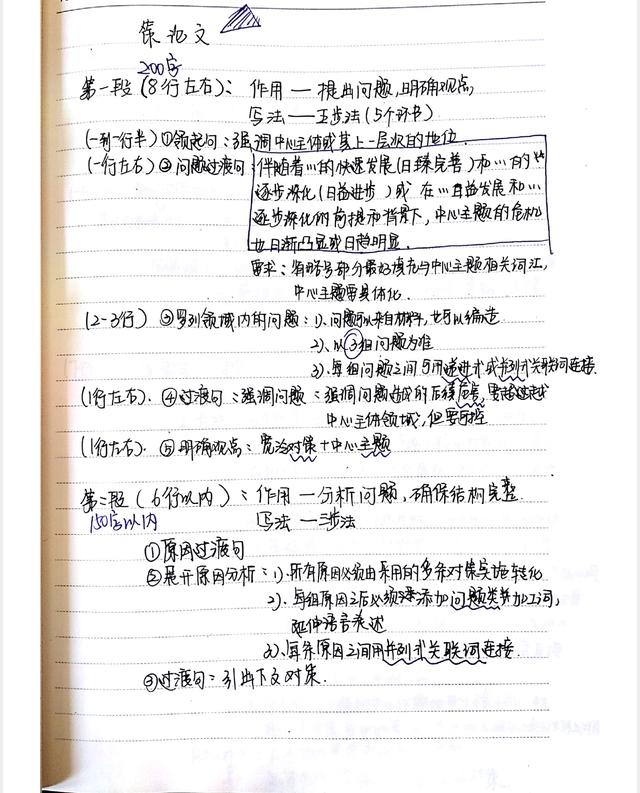 策论文
200字
第一段(8行左右): 作用 — 提出问题,明确观点,
写法 — 五步法(5个环节)
(一到一行半) ①领起句:强调中心主体或其上一层次的地位.
(一行左右) ②问题过渡句:伴随着…的快速发展(日臻完善)和…的
逐步深化(日益进步)或在…日益发展和…
逐步深化的前提和背景下,中心主题的危机
也日渐凸显或日趋明显.
要求:省略号部分最好填充与中心主题相关词汇,
中心主题要具体化.
(2-3行) ③罗列领域内的问题:1)、问题可以来自材料,也可以编造
2)、以③组问题为准
3)、每组问题之间要用递进式或并列式关联词连接.
(1行左右). ④过渡句:强调问题:强调问题造成的后续危害,要超过
中心主体领域,但要可控
(1行左右). ⑤明确观点:宽泛对策+中心主题
第二段(6行以内):作用 — 分析问题,确保结构完整.
150字以内
写法 — 三步法
①原因过渡句
②展开原因分析:1)、所有原因必须由采用的多条对策实施转化
2)、每组原因之后必须添加问题类附加词,
延伸语言表述
3)、每条原因之间用并列式关联词连接.
③过渡句:引出下文对策.